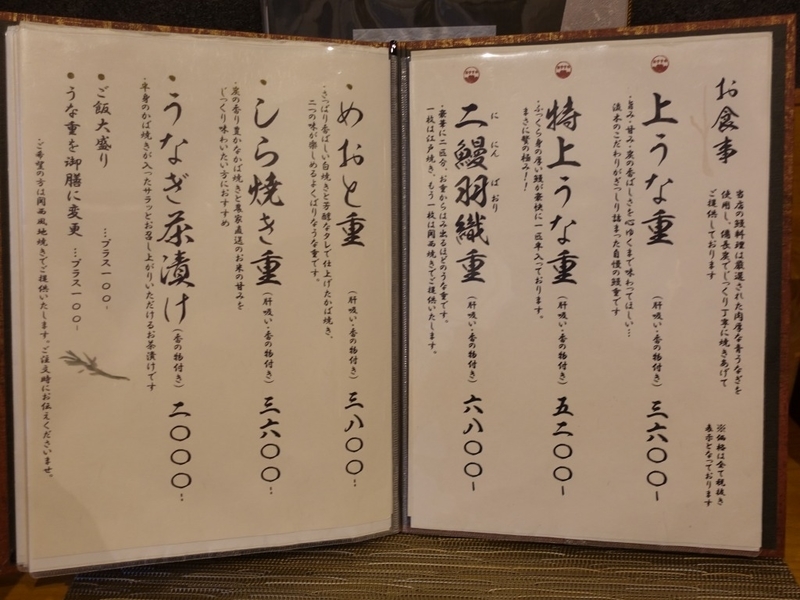 お食事
当店の鰻料理は厳選された肉厚な青うなぎを
使用し、備長炭でじっくり丁寧に焼きあげて
ご提供しております
※価格は全て税抜き
表示となっております
上うな重（肝吸い・香の物付き）三六〇〇~
・旨み・甘み・炭の香ばしさを心ゆくまで味わってほしい…
淡水のこだわりがぎっしり詰まった自慢の鰻重です
特上うな重（肝吸い・香の物付き）五二〇〇~
・ふっくら身の厚い鰻が豪快に一匹半入っております。
まさに贅の極み！！
に にん ばおり
二鰻羽織重（肝吸い・香の物付き）六八〇〇~
・豪華に二匹分、お重からはみ出るほどのうな重です。
一枚は江戸焼き、もう一枚は関西焼きでご提供いたします。
・めおと重（肝吸い・香の物付き）三八〇〇~
・さっぱり香ばしい白焼きと芳醇なタレで仕上げたかば焼き、
二つの味が楽しめるよくばりなうな重です。
・しら焼き重（肝吸い・香の物付き）三六〇〇~
・炭の香り豊かなかば焼きと農家直送のお米の甘みを
じっくり味わいたい方におすすめ
・うなぎ茶漬け（肝吸い・香の物付き）二〇〇〇~
・半身のかば焼きが入ったサラッとお召し上がりいただけるお茶漬けです
・ご飯大盛り …プラス一〇〇~
・うな重を御膳に変更 …プラス一〇〇~
・ご希望の方は関西風地焼きでご提供いたします。ご注文時にお伝えくださいませ。